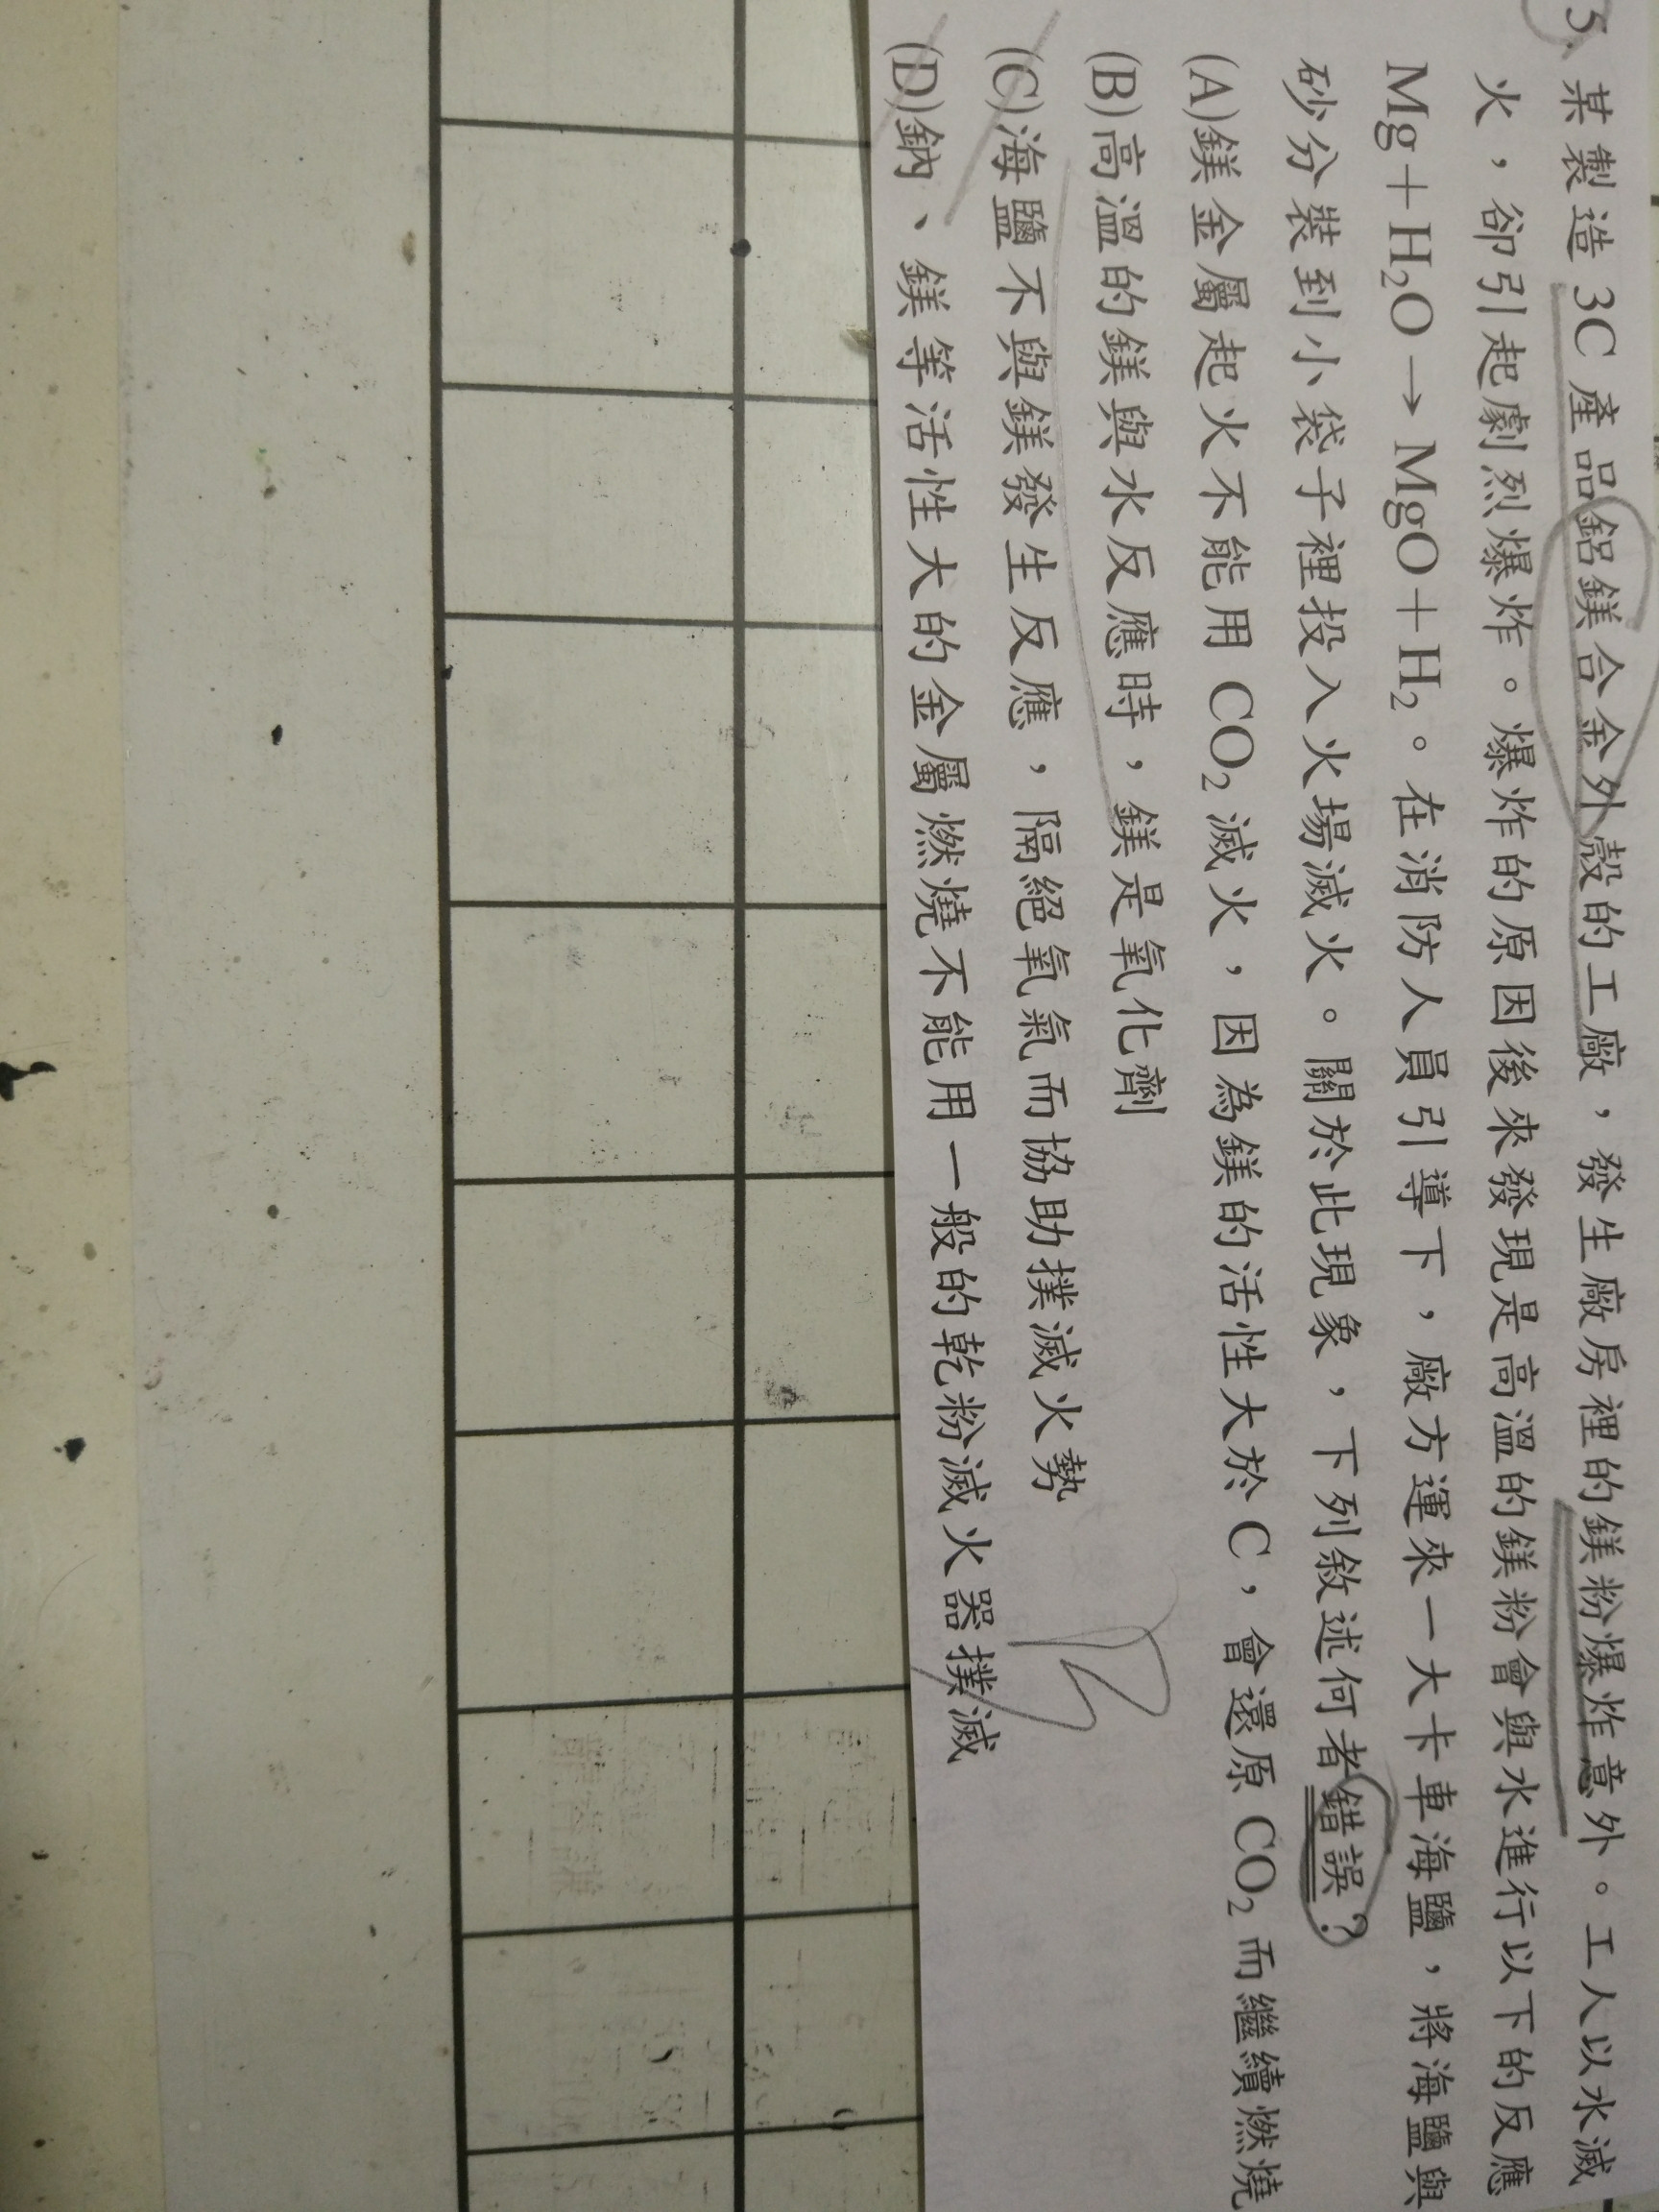 5. 某製造 3C 產品鋁鎂合金外殼的工廠，發生廠房裡的鎂粉爆炸意外。工人以水滅
火，卻引起劇烈爆炸。爆炸的原因後來發現是高溫的鎂粉會與水進行以下的反應
Mg＋H₂O→MgO＋H₂。在消防人員引導下，廠方運來一大卡車海鹽，將海鹽與
砂分裝到小袋子裡投入火場滅火。關於此現象，下列敘述何者錯誤？
(A)鎂金屬起火不能用 CO₂ 滅火，因為鎂的活性大於 C，會還原 CO₂ 而繼續燃燒
(B)高溫的鎂與水反應時，鎂是氧化劑
(C)海鹽不與鎂發生反應，隔絕氧氣而協助撲滅火勢
(D)鈉、鎂等活性大的金屬燃燒不能用一般的乾粉滅火器撲滅